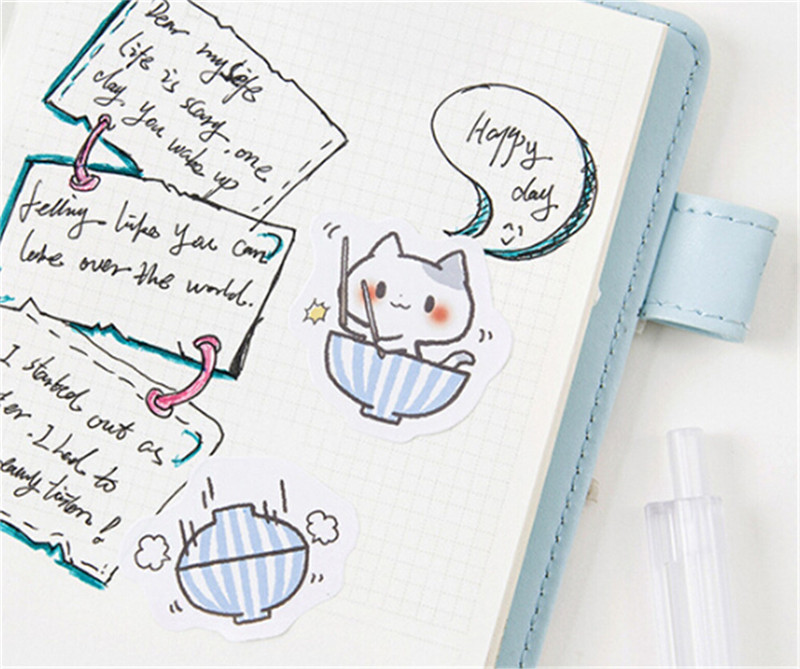 Dear my life
life is scary. one
day you wake up
felling like you can
love over the world.
I started out as
ter. I had to
listen!
Happy
day